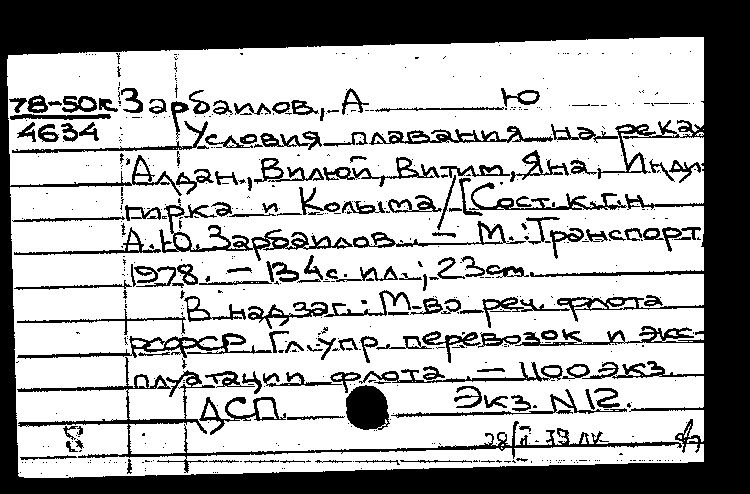 78-50к Зарбаилов, А Ю
4634 Условия плавания на реках
Алдан, Вилюй, Витим, Яна, Инди-
гирка и Колыма/[Сост. к.г.н.
А.Ю. Зарбаилов. – М.: Транспорт,
1978. – 134с. ил.; 23см.
В надзаг.: М-во реч. флота
РСФСР. Гл. упр. перевозок и экс-
плуатации флота. – 1100 экз.
ДСП. Экз. N 12.
8